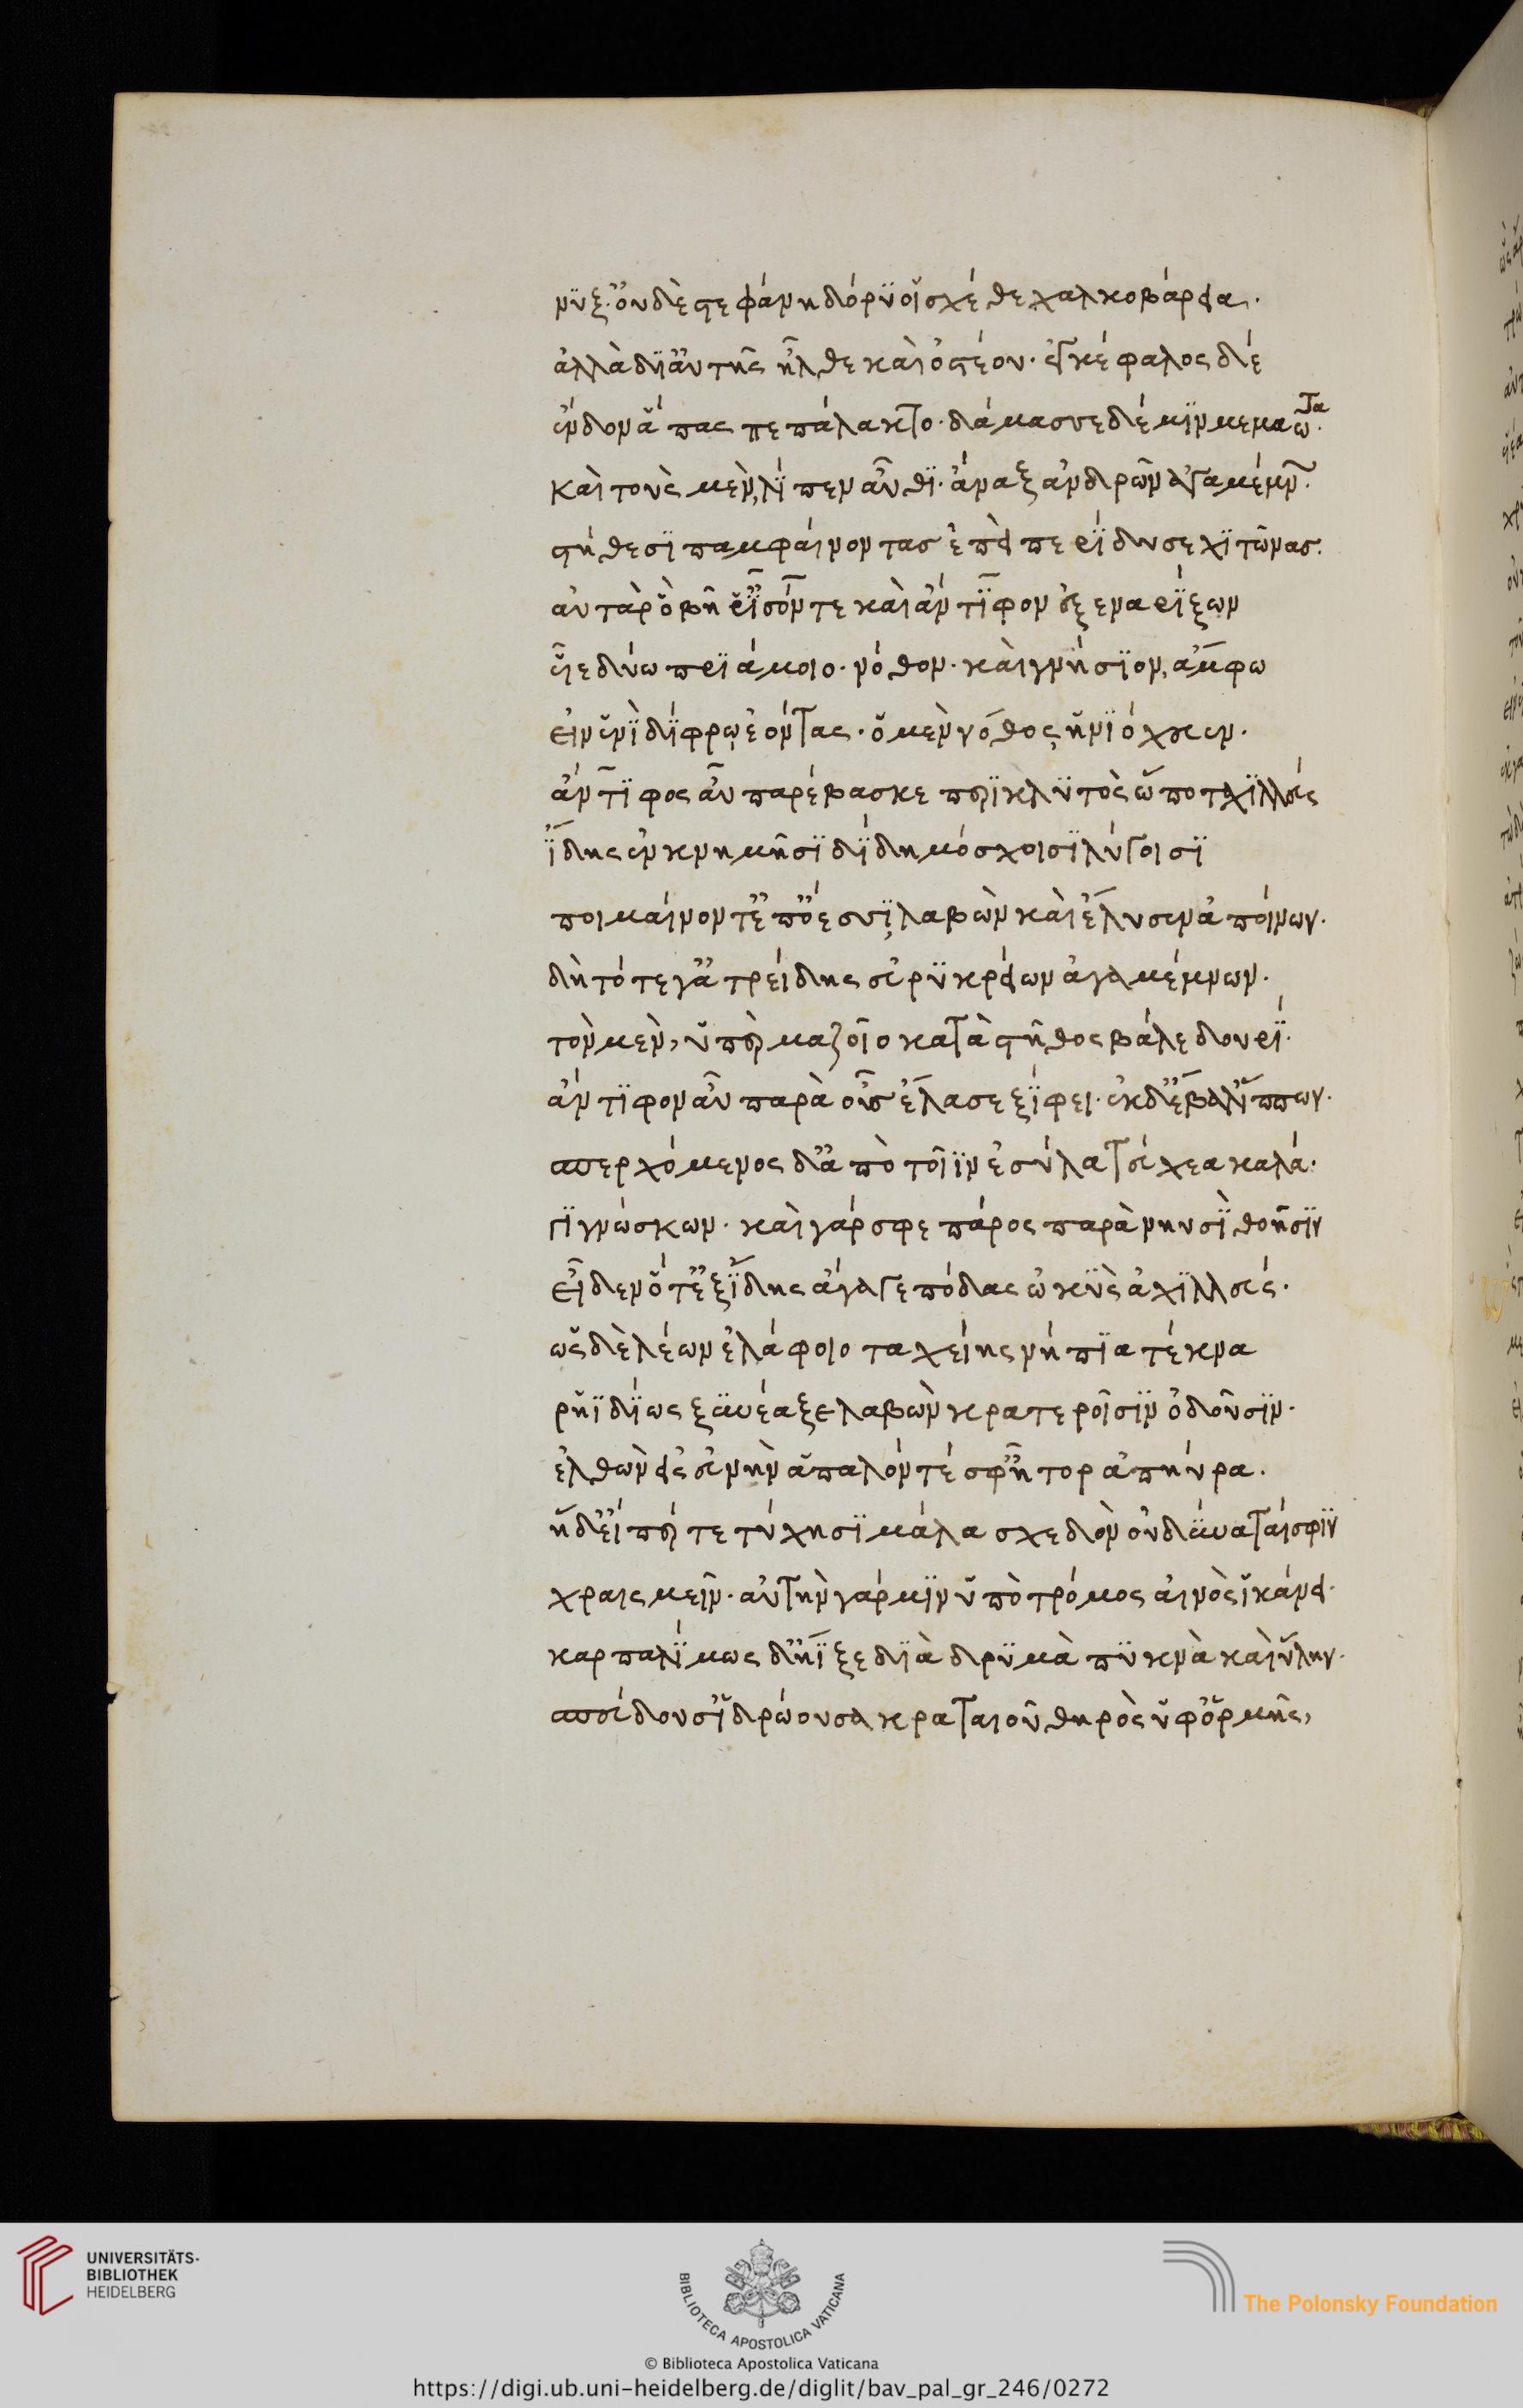 νὺξ· οὐδὲ στεφάνη δόρυ οἱ σχέθε χαλκοβάρεια.
ἀλλὰ δι' αὐτῆς ἦλθε καὶ ὀστέου· ἐγκέφαλος δέ
ἔνδον ἅπας πεπάλακτο· δάμασσε δέ μιν μεμαῶτα.
καὶ τοὺς μὲν, λίπεν αὖθι· ἄναξ ἀνδρῶν ἀγαμέμνων.
στήθεσι παμφαίνοντας ἐπεὶ περίδυσε χιτῶνας.
αὐτὰρ ὁ βῆ ῥ' ἶσόν τε καὶ ἄντιφον ἐξεναρίξων
υἷε δύω πριάμοιο. νόθον. καὶ γνήσιον, ἄμφω
εἰν ἑνὶ δίφρῳ ἐόντας. ὁ μὲν νόθος ἡνιόχευεν.
ἄντιφος αὖ παρέβασκε περικλυτὸς ὥ ποτ' ἀχιλλεύς
ἴδης ἐν κνημῆσι δίδη μόσχοισι λύγοισι
ποιμαίνοντ' ἐπ' ὄεσσι λαβὼν καὶ ἔλυσεν ἀποίνων.
δὴ τότε γ' ἀτρείδης εὐρυκρείων ἀγαμέμνων.
τὸν μὲν, ὑπὲρ μαζοῖο κατὰ στῆθος βάλε δουρί.
ἄντιφον αὖ παρὰ οὖς ἔλασε ξίφει. ἐκ δ' ἔβαλ' ἵππων.
σπερχόμενος δ' ἀπὸ τοῖϊν ἐσύλα τεύχεα καλά.
γιγνώσκων. καὶ γάρ σφε πάρος παρὰ νηυσὶ θοῆσιν
εἶδεν ὅτ' ἐξ ἴδης ἄγαγε πόδας ὠκὺς ἀχιλλεύς.
ὡς δὲ λέων ἐλάφοιο ταχείης νήπια τέκνα
ῥηϊδίως ξυνέαξε λαβὼν κρατεροῖσιν ὀδοῦσιν.
ἐλθὼν εἰς εὐνὴν ἁπαλόν τέ σφ' ἦτορ ἀπηύρα.
ἡ δ' εἴπερ τε τύχησι μάλα σχεδὸν οὐ δύναταί σφιν
χραισμεῖν. αὐτὴν γάρ μιν ὑπὸ τρόμος αἰνὸς ἱκάνει.
καρπαλίμως δ' ἤϊξε διὰ δρυμὰ πυκνὰ καὶ ὕλην.
σπεύδουσ' ἱδρώουσα κραταιοῦ θηρὸς ὑφ' ὁρμῆς,
UNIVERSITÄTS-
BIBLIOTHEK
HEIDELBERG
BIBLIOTECA APOSTOLICA VATICANA
The Polonsky Foundation
© Biblioteca Apostolica Vaticana
https://digi.ub.uni-heidelberg.de/diglit/bav_pal_gr_246/0272